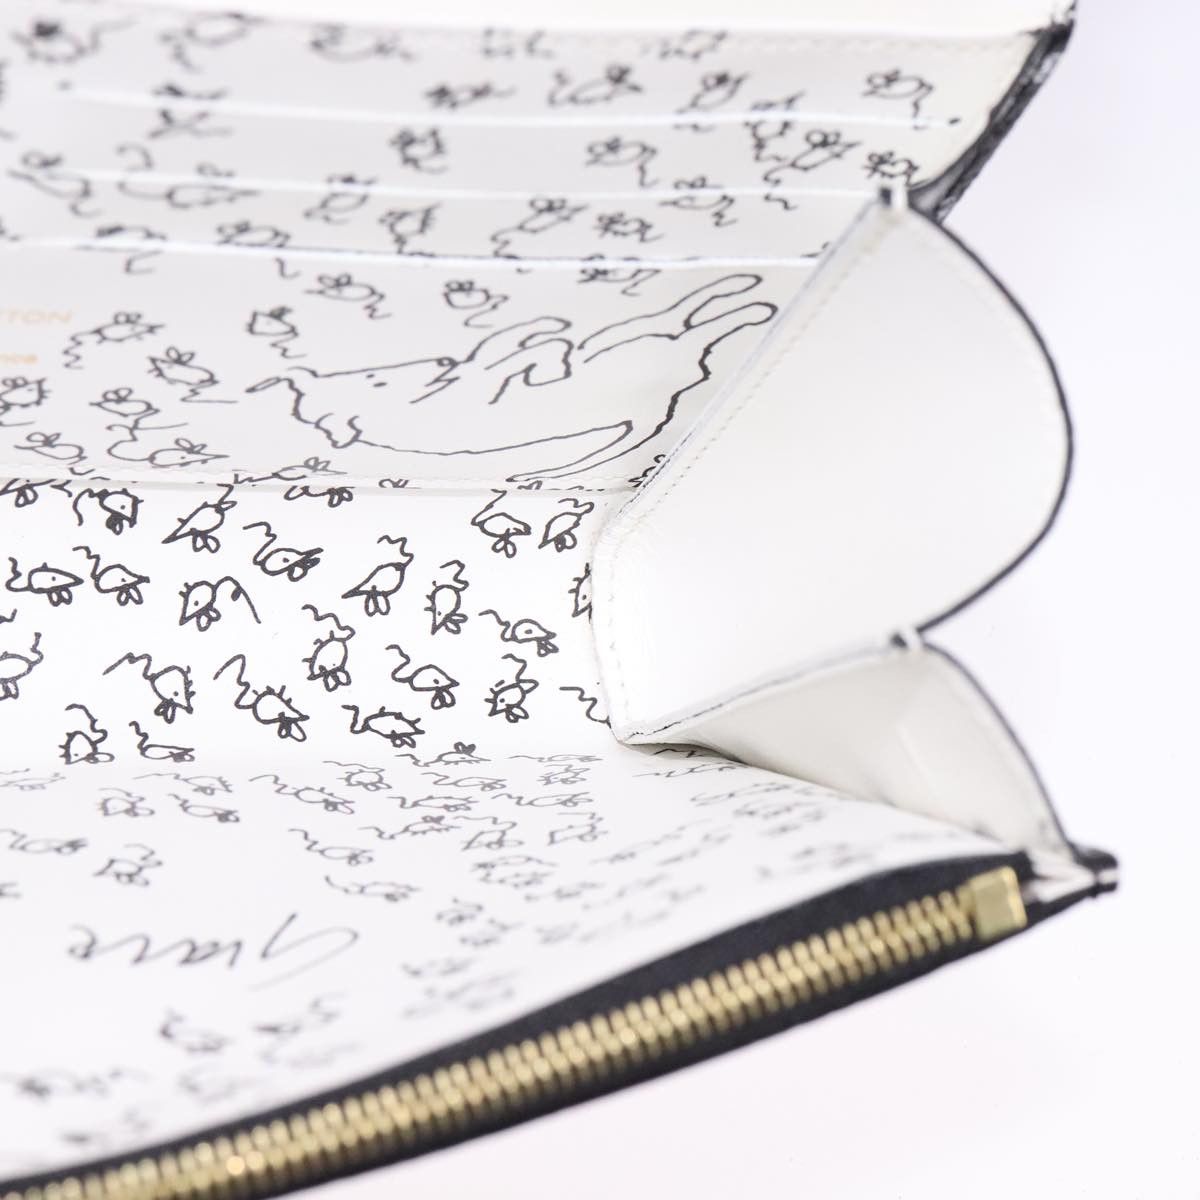 TTON
nce
Grace